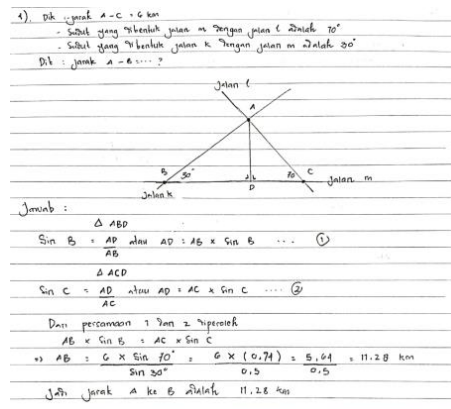 1). Dik : jarak A - C = 6 km
- Sudut yang dibentuk jalan m dengan jalan l adalah 70°
- Sudut yang dibentuk jalan k dengan jalan m adalah 30°
Dit : jarak A - B = .... ?
Jalan l
A
B 30° 70 C Jalan m
D
Jalan k
Jawab :
△ ABD
Sin B = AD/AB atau AD = AB × Sin B .... ①
△ ACD
Sin C = AD/AC atau AD = AC × Sin C .... ②
Dari persamaan 1 dan 2 diperoleh
AB × Sin B = AC × Sin C
AB = 6 × Sin 70°/Sin 30° = 6 × (0,94)/0,5 = 5,64/0,5 = 11.28 km
Jadi jarak A ke B adalah 11,28 km